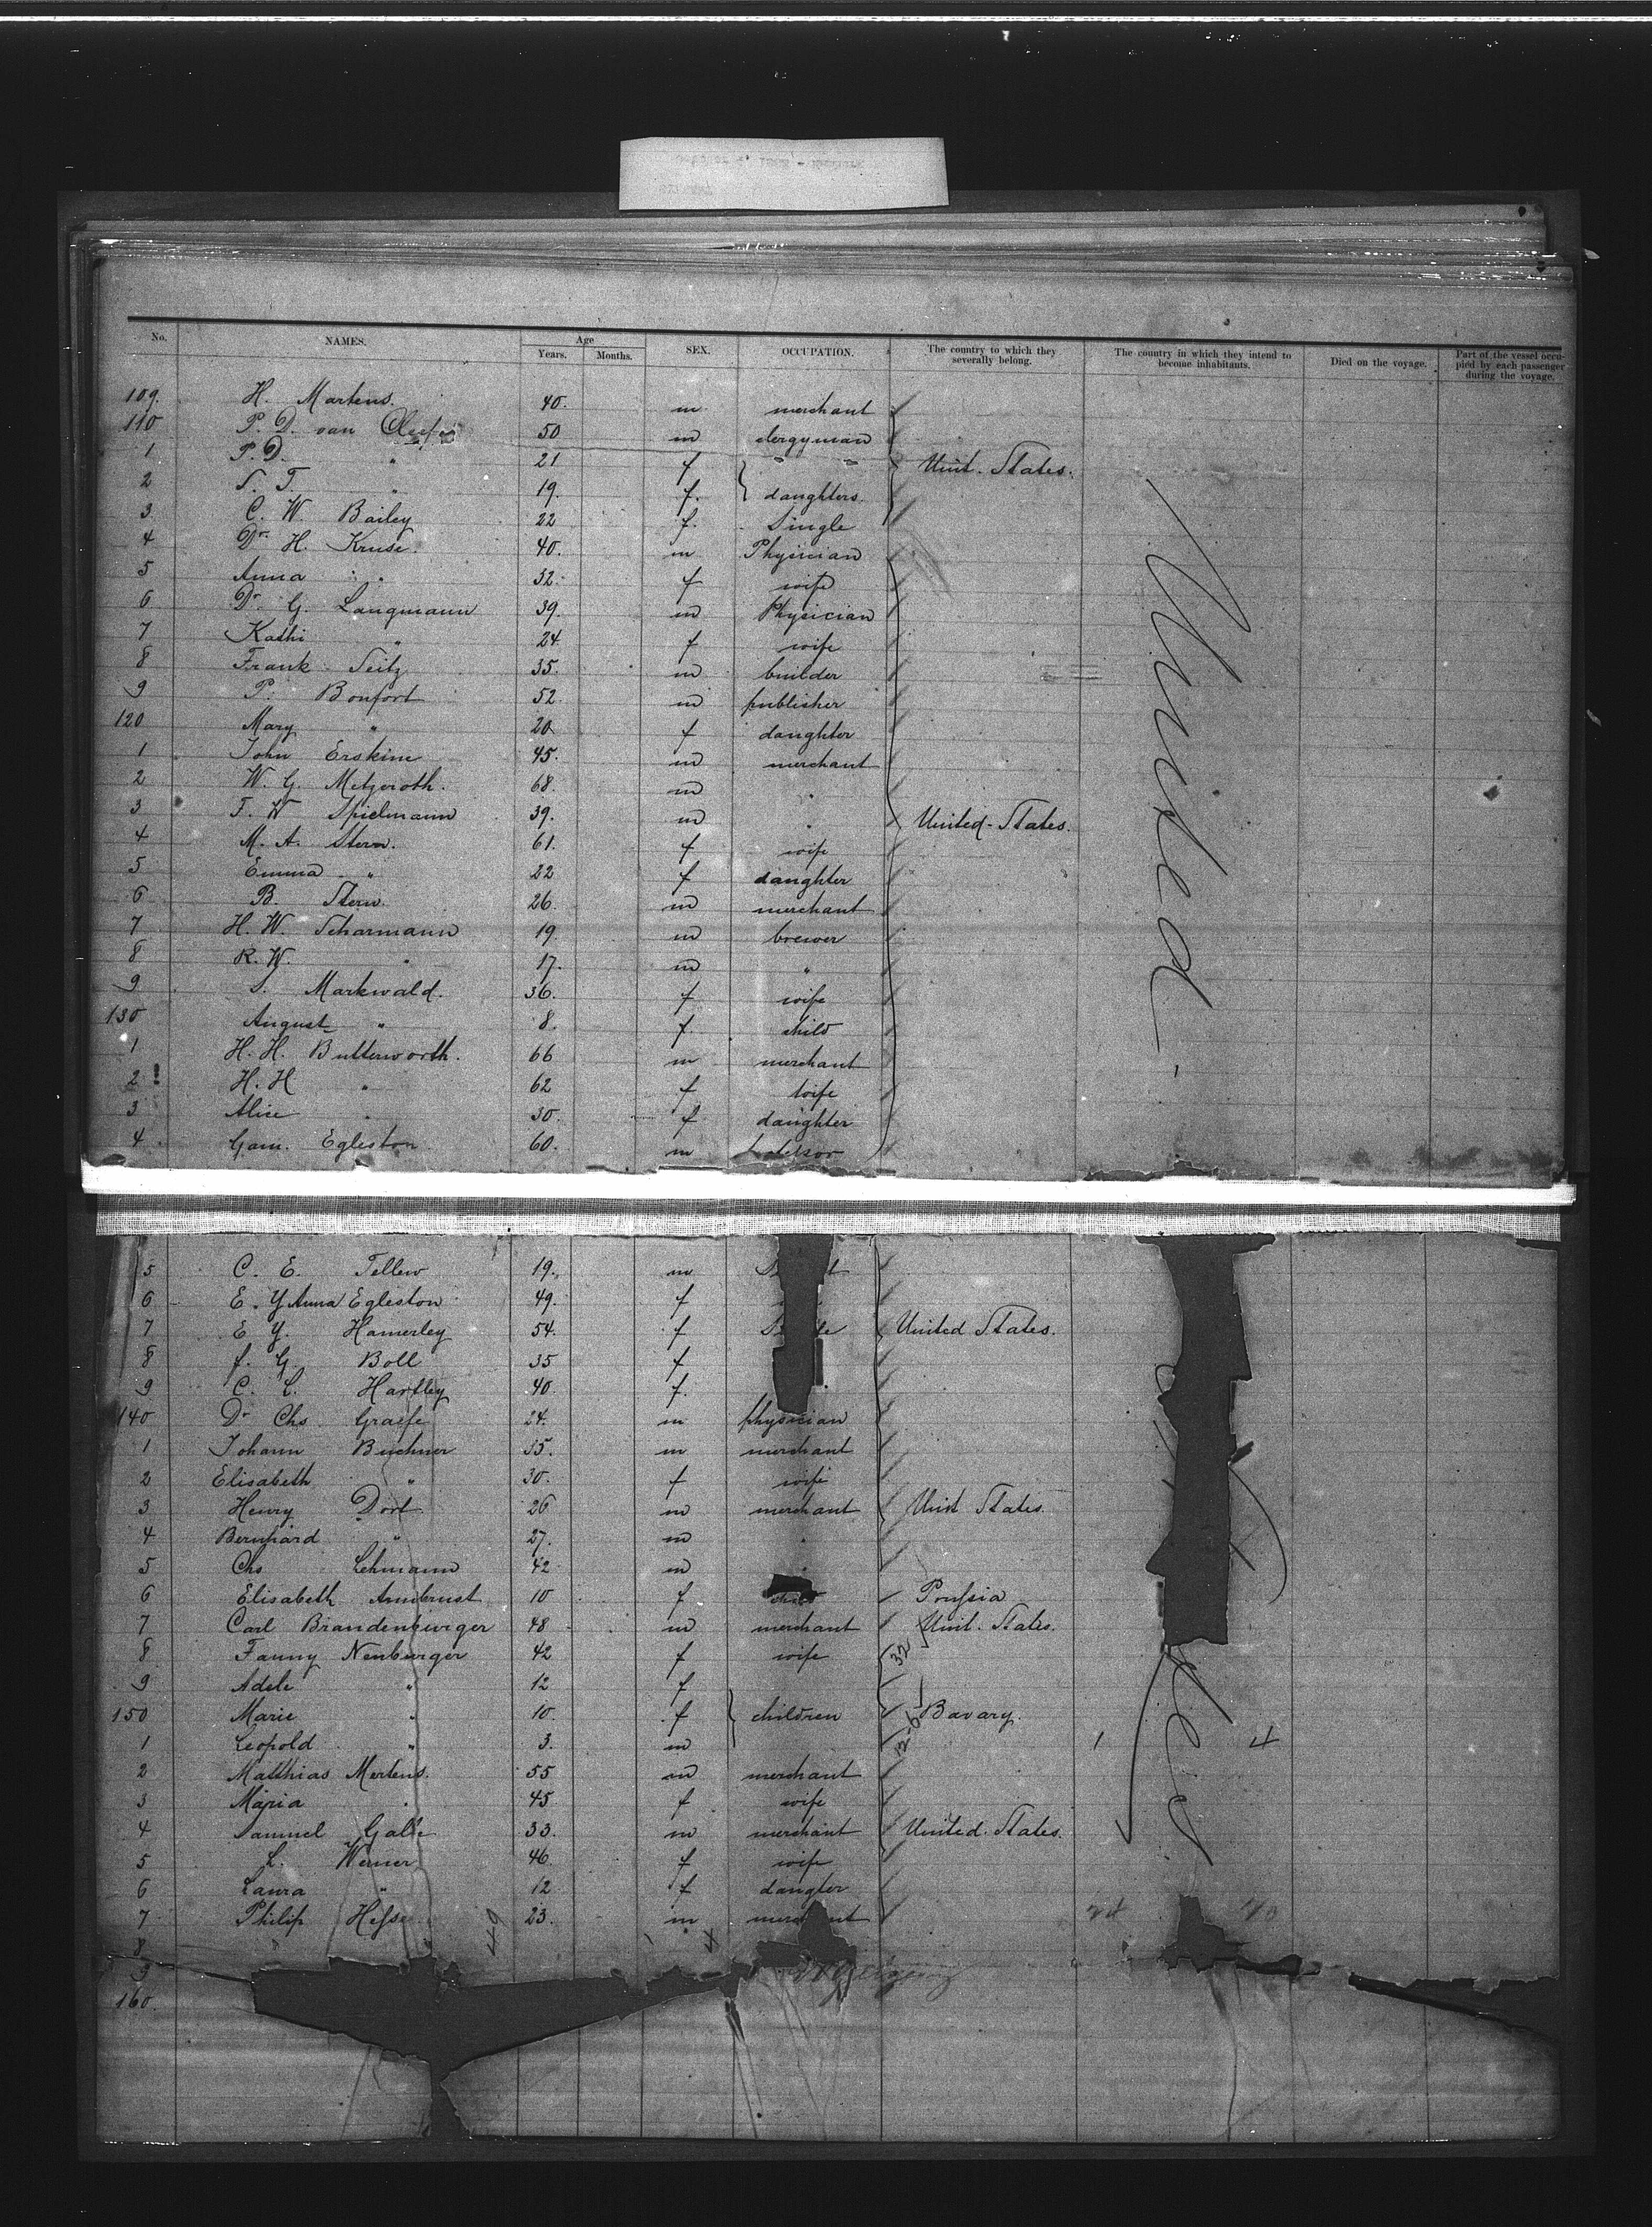 No. NAMES. Age Years. Months. SEX. OCCUPATION. The country to which they severally belong. The country in which they intend to become inhabitants. Died on the voyage. Part of the vessel occupied by each passenger during the voyage.
109. H. Martens. 40. m merchant
110 P. D. van 50 m clergyman
1 P. D. " 21 f " " Unit. States.
2 S. T. " 19. f. daughters
3 C. W. Bailey 22 f. Single
4 Dr. H. Kruse. 40. m Physician
5 Anna " 32. f wife
6 Dr. G. Langmann 39. m Physician
7 Kathi " 24 f wife
8 Frank Seitz 35. m builder
9 P. Bonfort 52. m publisher
120 Mary " 20 f daughter
1 John Erskine 45. m merchant
2 W. G. Metzeroth. 68. m "
3 F. W Spielmann 39. m " United-States.
4 M. A. Stern. 61. f wife
5 Emma " 22 f daughter
6 B. Stern. 26. m merchant
7 H. W. Scharmann 19 m brewer
8 R. W. " 17. m "
9 S. Markwald. 36. f wife
130 August " 8. f child
1 H. H. Butterworth. 66 m merchant
2 H. H " 62 f wife
3 Alice " 30. f daughter
4 Egleston 60. m
United-
5 C. E. Tellew 19. m
6 E. Y Anna Egleston 49. f
7 E Y. Hamerley 54. f United States.
8 f. G. Boll 35 f
9 C. L. Hartley 40 f.
140 Dr Chs. Graefe 24. m physician
1 Johann Buchner 35. m merchant
2 Elisabeth " 30. f wife
3 Henry Dorl 26 m merchant Unit States.
4 Bernhard " 27. m "
5 Chs Lehmann 42 m
6 Elisabeth Armbrust 10 f child Prussia
7 Carl Brandenburger 48 m merchant Unit. States.
8 Fanny Neuburger 42 f wife 32
9 Adele " 12 f
150 Marie " 10. f children Bavary.
1 Leopold " 3. m 1 4
2 Matthias Mertens. 55 m merchant
3 Maria " 45 f wife
4 Samuel Galle 33. m merchant United. States.
5 L. Werner 46. f wife
6 Laura " 12 f daugter
7 Philip Hesse 23. m merchant
8 49 4
9
160.